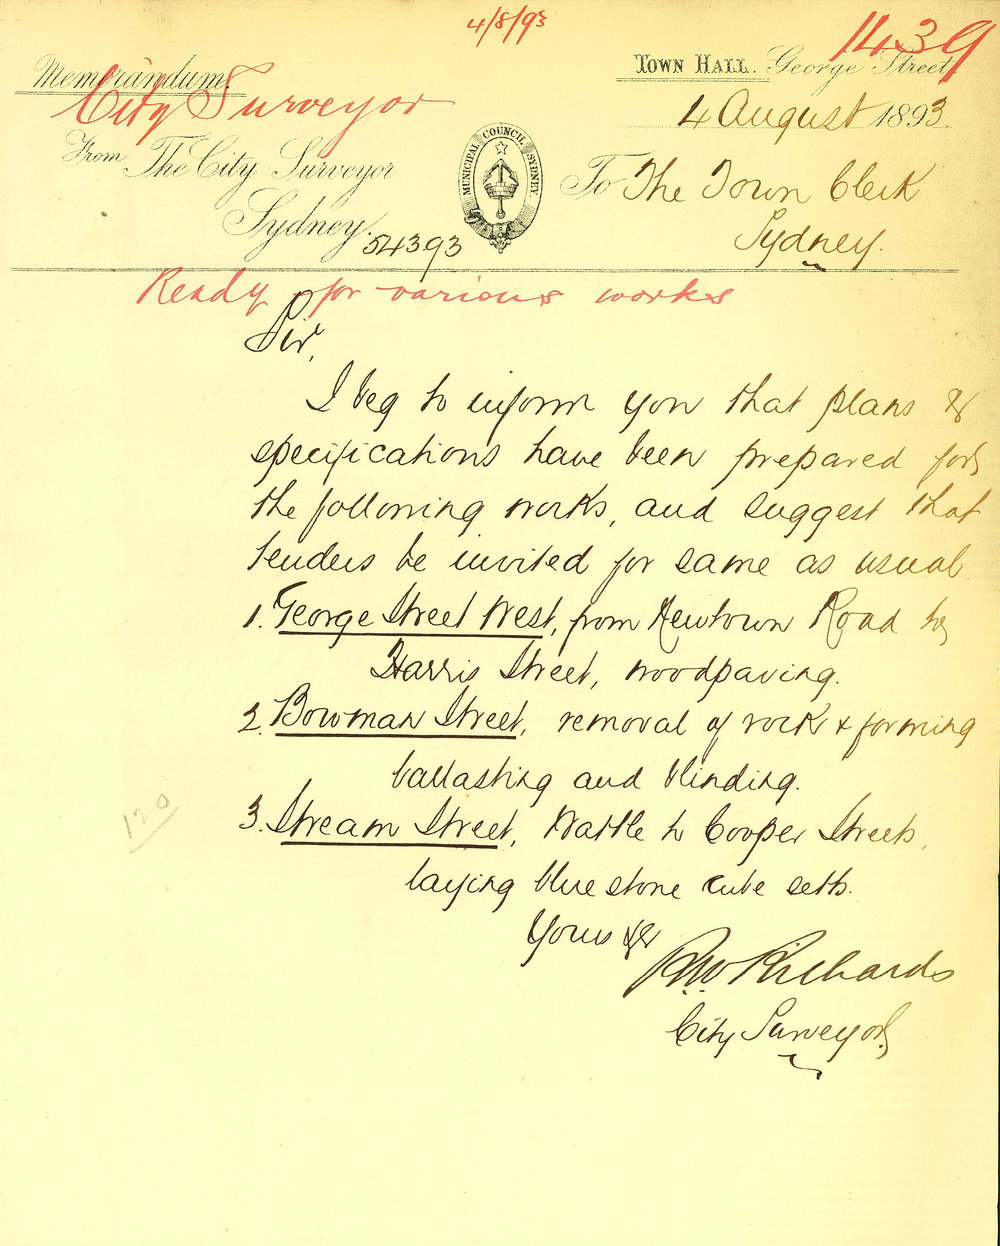 4/8/93
1439
Memorandum.
Town Hall. George Street
City Surveyor
4 August 1893.
From The City Surveyor
Sydney.
MUNICIPAL COUNCIL SYDNEY.
To The Town Clerk
Sydney.
54393
Ready for various works
Sir,
I beg to inform you that plans &
specifications have been prepared for
the following works, and suggest that
tenders be invited for same as usual.
1. George Street West, from Newtown Road to
Harris Street, woodpaving.
2. Bowman Street, removal of rock & forming
ballasting and blinding.
3. Stream Street, Wattle to Cooper Streets,
laying blue stone cube setts.
120
Yours &c
R W Richards
City Surveyor.